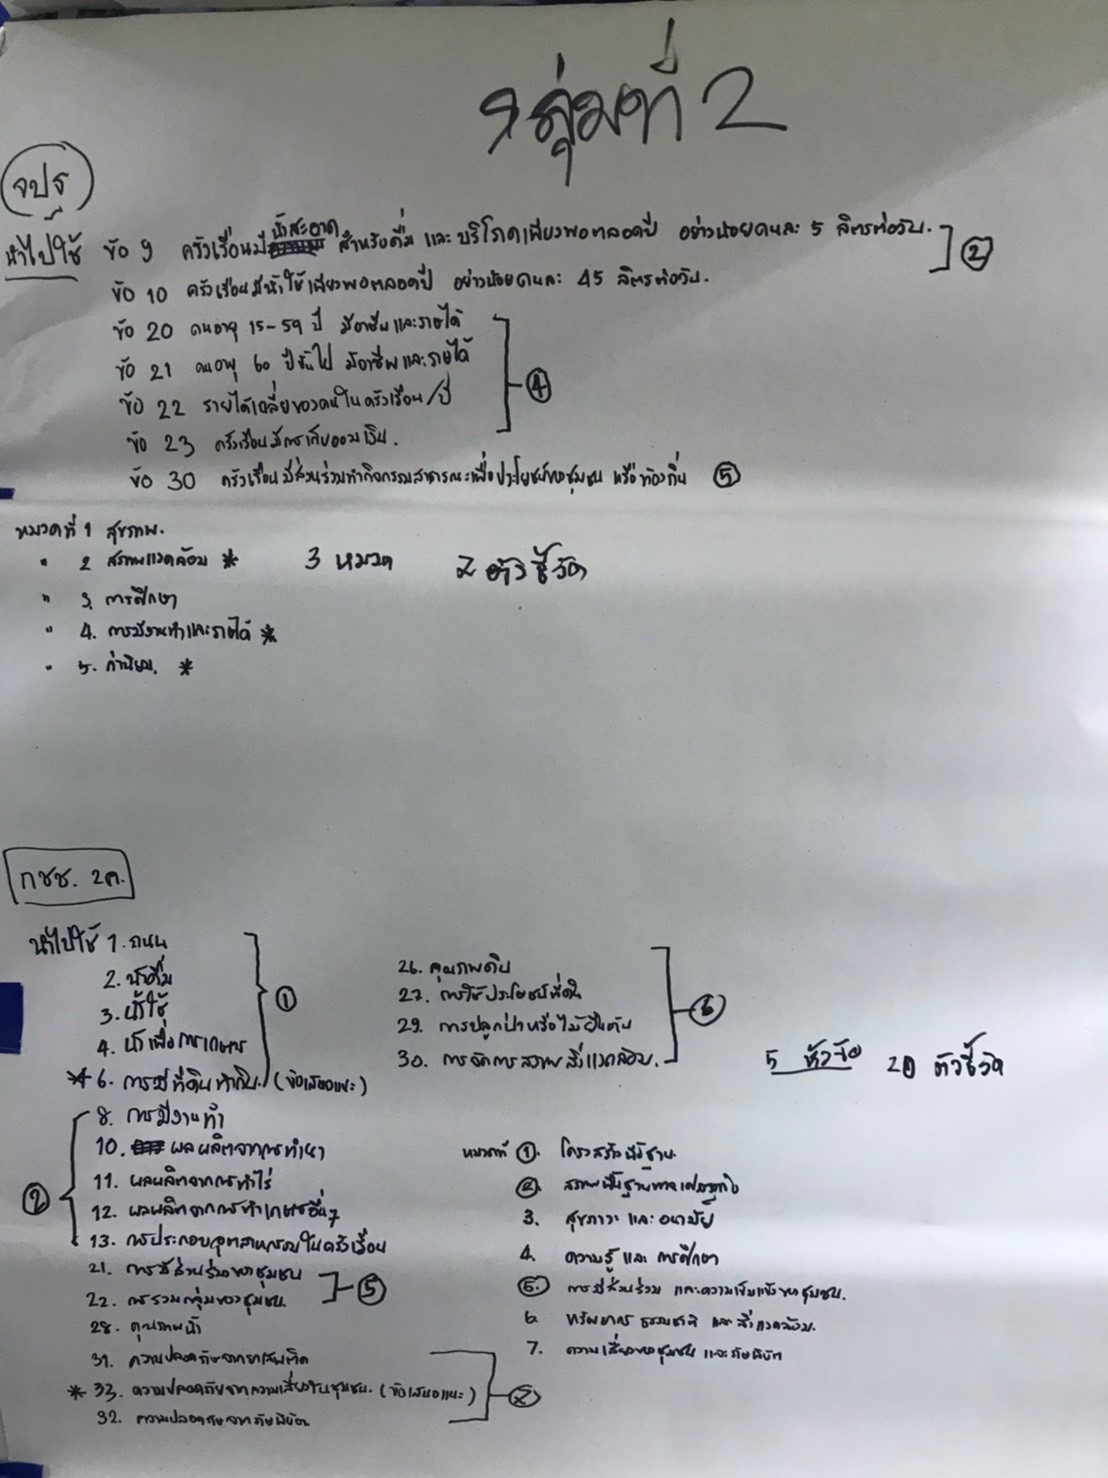 กลุ่มที่ 2
จปฐ
นำไปใช้ ข้อ 9 ครัวเรือนมีน้ำสะอาด สำหรับดื่ม และบริโภคเพียงพอตลอดปี อย่างน้อยคนละ 5 ลิตรต่อวัน. ②
ข้อ 10 ครัวเรือนมีน้ำใช้เพียงพอตลอดปี อย่างน้อยคนละ 45 ลิตรต่อวัน.
ข้อ 20 คนอายุ 15-59 ปี มีอาชีพและรายได้
ข้อ 21 คนอายุ 60 ปีขึ้นไป มีอาชีพและรายได้
④
ข้อ 22 รายได้เฉลี่ยของคนในครัวเรือน/ปี
ข้อ 23 ครัวเรือนมีการเก็บออมเงิน.
ข้อ 30 ครัวเรือนมีส่วนร่วมทำกิจกรรมสาธารณะเพื่อประโยชน์ของชุมชน หรือท้องถิ่น ⑤
หมวดที่ 1 สุขภาพ.
" 2 สภาพแวดล้อม * 3 หมวด 7 ตัวชี้วัด
" 3. การศึกษา
" 4. การมีงานทำและรายได้ *
" 5. ค่านิยม. *
กชช. 2ค.
นำไปใช้ 1. ถนน
2. น้ำดื่ม
3. น้ำใช้
①
4. น้ำเพื่อการเกษตร
* 6. การมีที่ดินทำกิน. (ข้อเสนอแนะ)
8. การมีงานทำ
10. ผลผลิตจากการทำนา
11. ผลผลิตจากการทำไร่
②
12. ผลผลิตจากการทำเกษตรอื่นๆ
13. การประกอบอุตสาหกรรมในครัวเรือน
21. การมีส่วนร่วมของชุมชน
⑤
22. การรวมกลุ่มของชุมชน.
28. คุณภาพน้ำ
31. ความปลอดภัยจากยาเสพติด
* 33. ความปลอดภัยจากความเสี่ยงในชุมชน. (ข้อเสนอแนะ) ⑦
32. ความปลอดภัยจากภัยพิบัติ
26. คุณภาพดิน
27. การใช้ประโยชน์ที่ดิน
⑥
29. การปลูกป่าหรือไม้ยืนต้น
30. การจัดการสภาพสิ่งแวดล้อม.
5 หัวข้อ 20 ตัวชี้วัด
หมวดที่ ①. โครงสร้างพื้นฐาน.
②. สภาพพื้นฐานทางเศรษฐกิจ
3. สุขภาวะ และอนามัย
4. ความรู้ และ การศึกษา
⑤. การมีส่วนร่วม และความเข้มแข็งของชุมชน.
6 ทรัพยากรธรรมชาติ และสิ่งแวดล้อม.
7. ความเสี่ยงของชุมชน และภัยพิบัติ